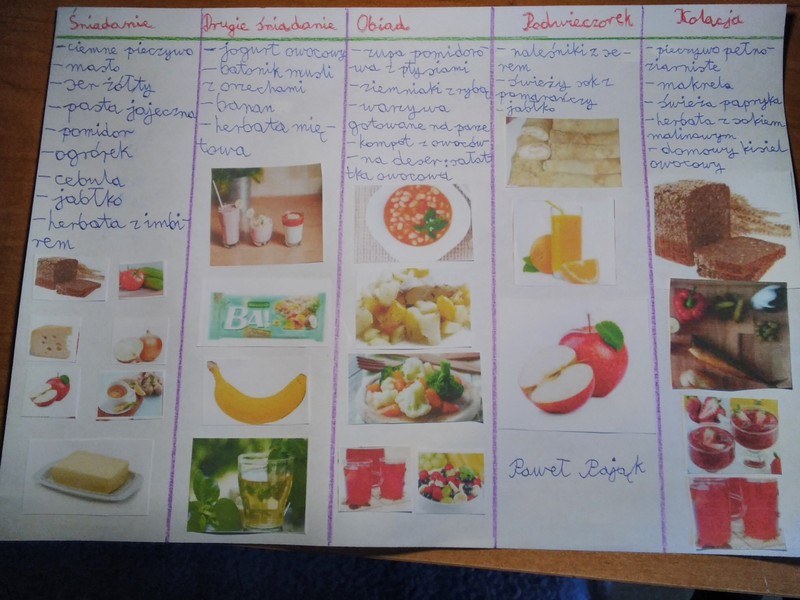 Śniadanie
- ciemne pieczywo
- masło
- ser żółty
- pasta jajeczna
- pomidor
- ogórek
- cebula
- jabłko
- herbata z imbi-
rem
Drugie śniadanie
- jogurt owocowy
- batonik musli
z orzechami
- banan
- herbata mię-
towa
BA!
Obiad
- zupa pomidoro-
wa z ptysiami
- ziemniaki z rybą
- warzywa
gotowane na parze
- kompot z owoców
- na deser: sałat
tka owocowa
Podwieczorek
- naleśniki z se-
rem
- świeży sok z
pomarańczy
- jabłko
Paweł Pająk
Kolacja
- pieczywo pełno-
ziarniste
- makrela
- świeża papryka
- herbata z sokiem
malinowym
- domowy kisiel
owocowy